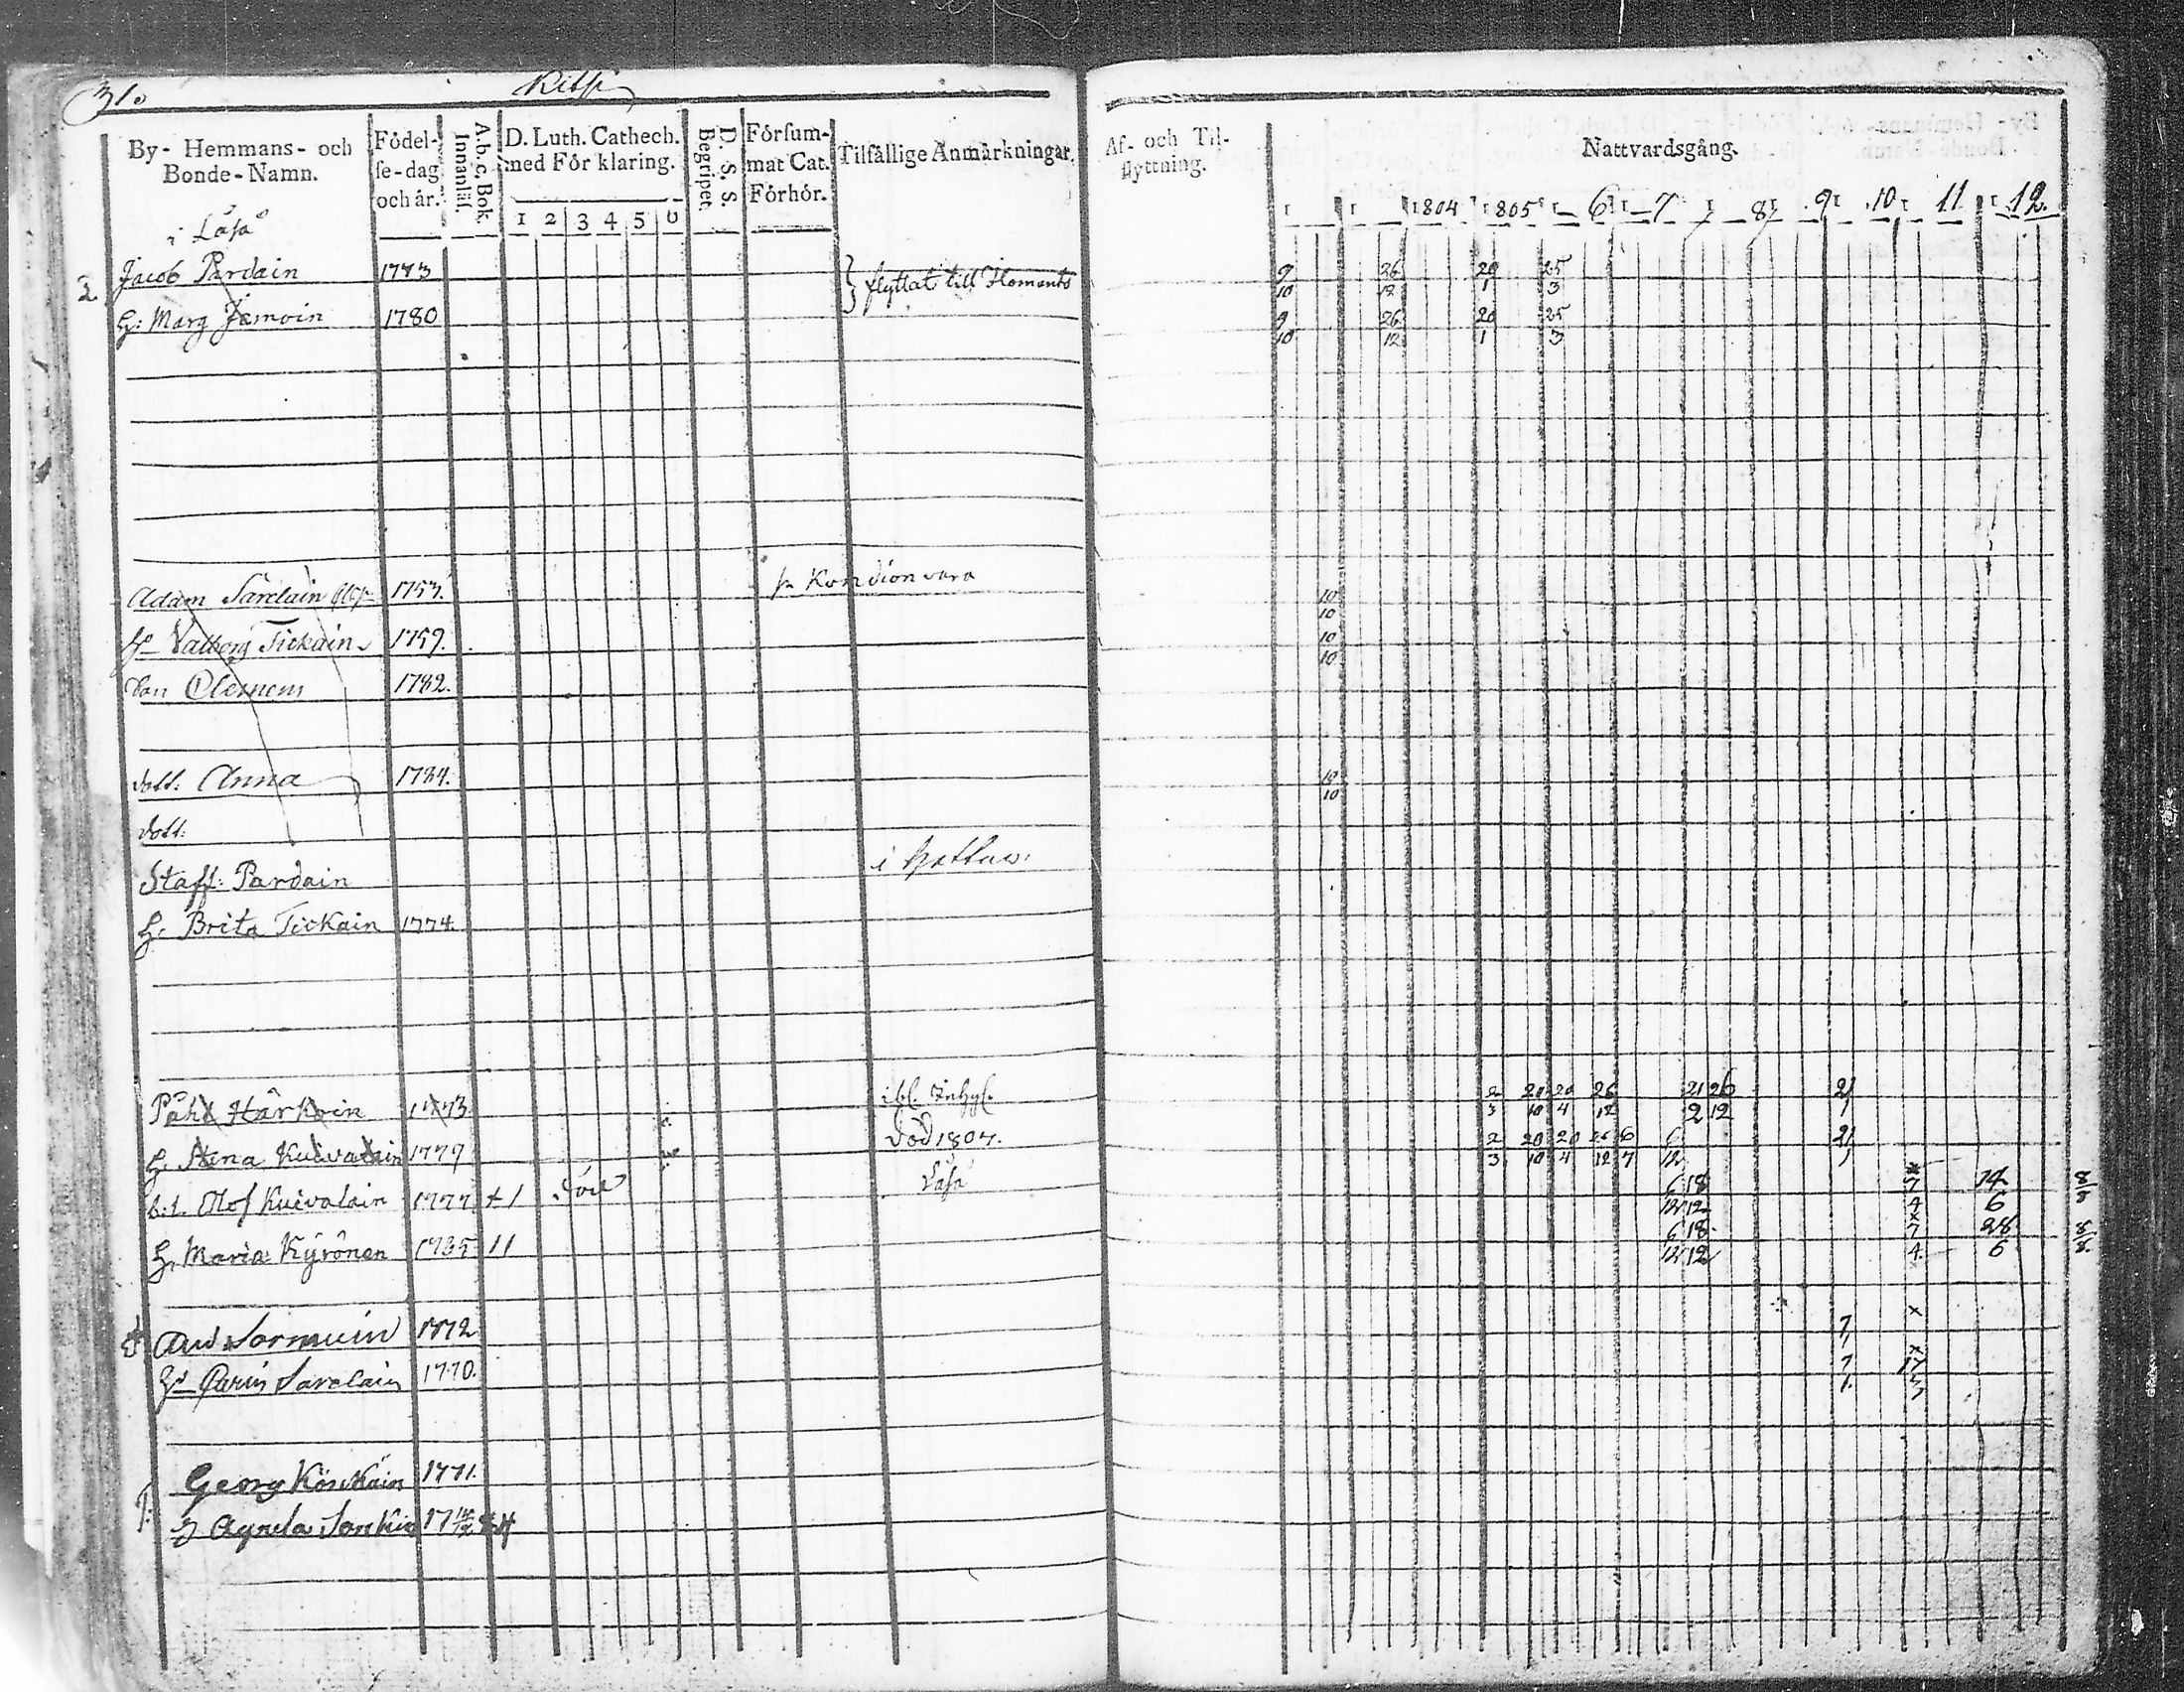 31.
By- Hemmans- och Bonde-Namn.
Födel-se-dag och år.
A.b.c. Bok. Innanläs.
D. Luth. Cathech. med För klaring.
1 2 3 4 5 6
D. S. S. Begripet.
Försum-mat Cat. Förhör.
Tilfällige Anmärkningar.
Af- och Til-flyttning.
Nattvardsgång.
1804 1805 6 7 8 9 10 11 12.
i Låså
2 Jacob Pardain 1773 flyttat till Ilomants 9/10 26/12 20/1 25/3
H: Marg 1780 9/10 26/12 20/1 25/3
Adam Särelain 1753. Kondionvara 10/10
Valborg Tickain 1759. 10/10
Son Clemens 1782.
dott: Anna 1784. 10/10
dott:
Staff: Pardain i
H: Brita Tickain 1774.
Påhl Härkoin 1773 Inhys. 2/3 20/10 20/4 26/12 21/2 26/12 21/1
H: Stina Kuivalain 1779 död 1807. 2/3 20/10 20/4 26/12 6/7 6/12 21/1
Olof Kuivalain 1777 + 1 Låså 6/12 18/12 7/4 14/6 8/8
H. Maria Kyrönen 1785 11 6/12 18/12 7/4 28/6 8/8
And Sormuin 1772 7/1
Carin Sarelain 1770. 7/1 17/3
Georg 1771.
Agneta